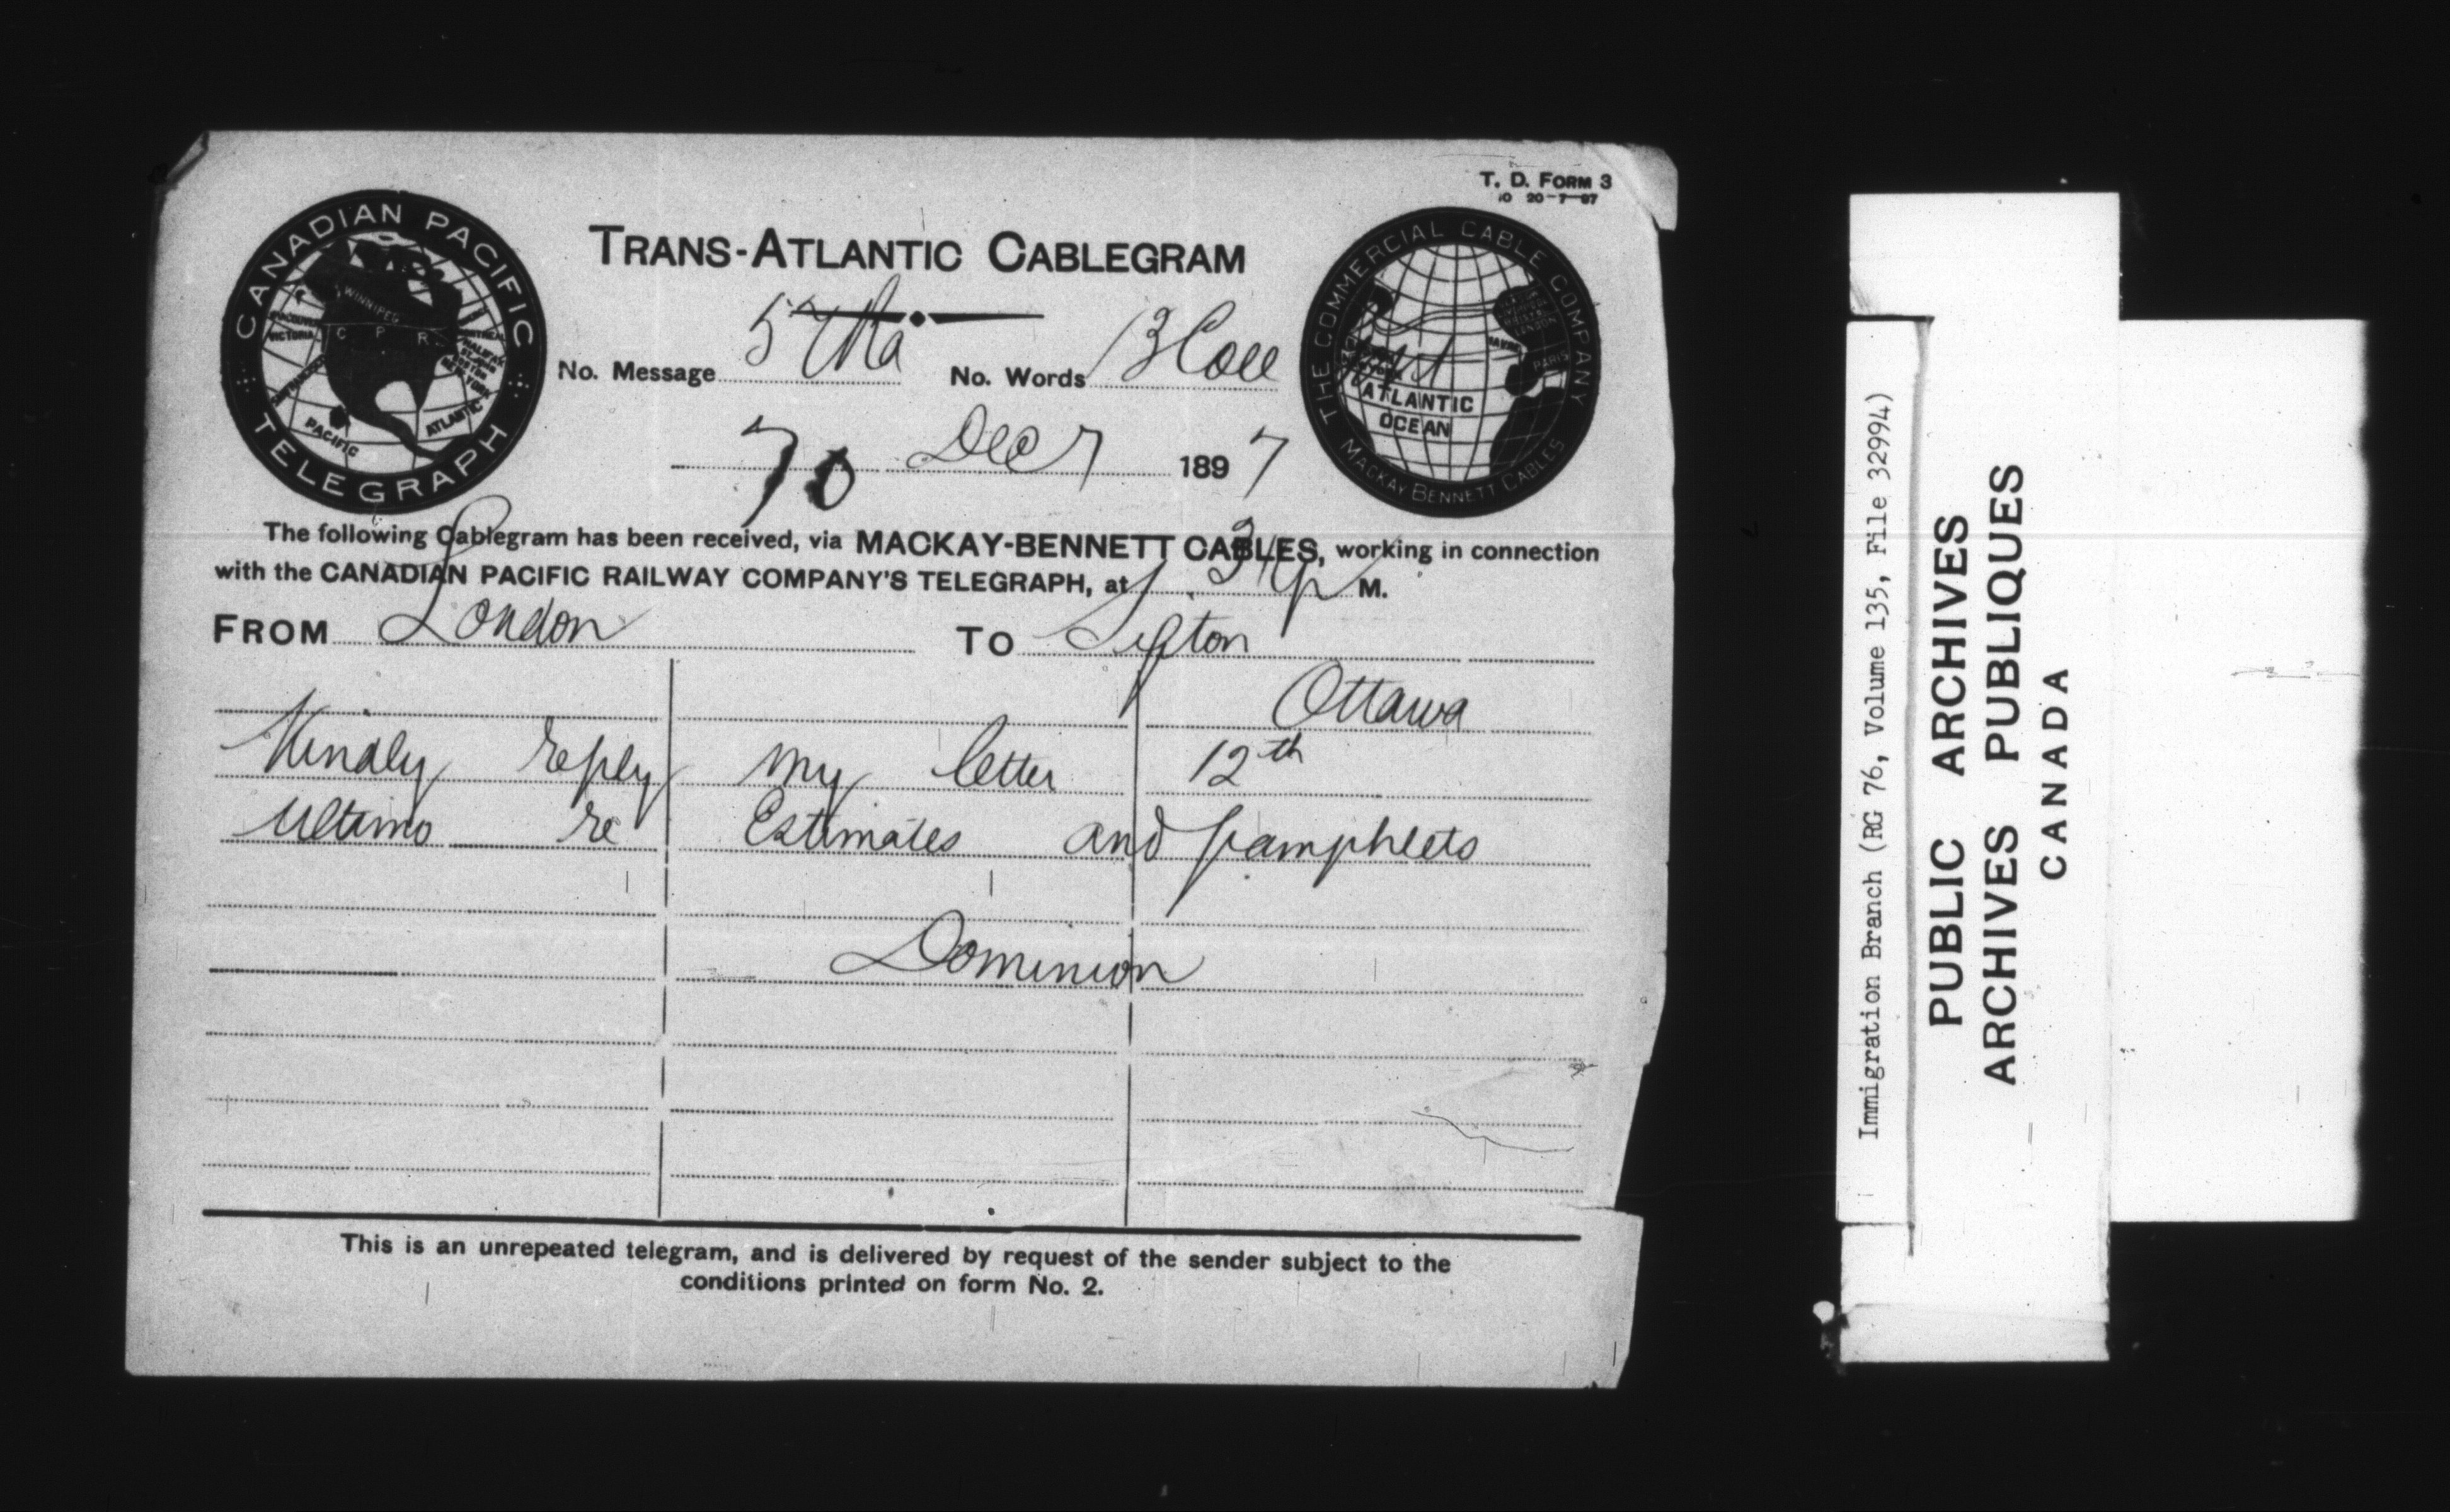 T. D. FORM 3
20-7-97
TRANS-ATLANTIC CABLEGRAM
CANADIAN PACIFIC TELEGRAPH
WINNIPEG
VICTORIA
C P R
PACIFIC
ATLANTIC
THE COMMERCIAL CABLE COMPANY
MACKAY BENNETT CABLES
HAVRE
PARIS
ATLANTIC
OCEAN
No. Message 5
No. Words 13
70 Dec 7 1897
The following Cablegram has been received, via MACKAY-BENNETT CABLES, working in connection
with the CANADIAN PACIFIC RAILWAY COMPANY'S TELEGRAPH, at M.
FROM London TO Sifton
Ottawa
Kindly reply my letter 12th
ultimo re Estimates and pamphlets
Dominion
This is an unrepeated telegram, and is delivered by request of the sender subject to the
conditions printed on form No. 2.
Immigration Branch (RG 76, Volume 135, File 32994)
PUBLIC ARCHIVES
ARCHIVES PUBLIQUES
CANADA